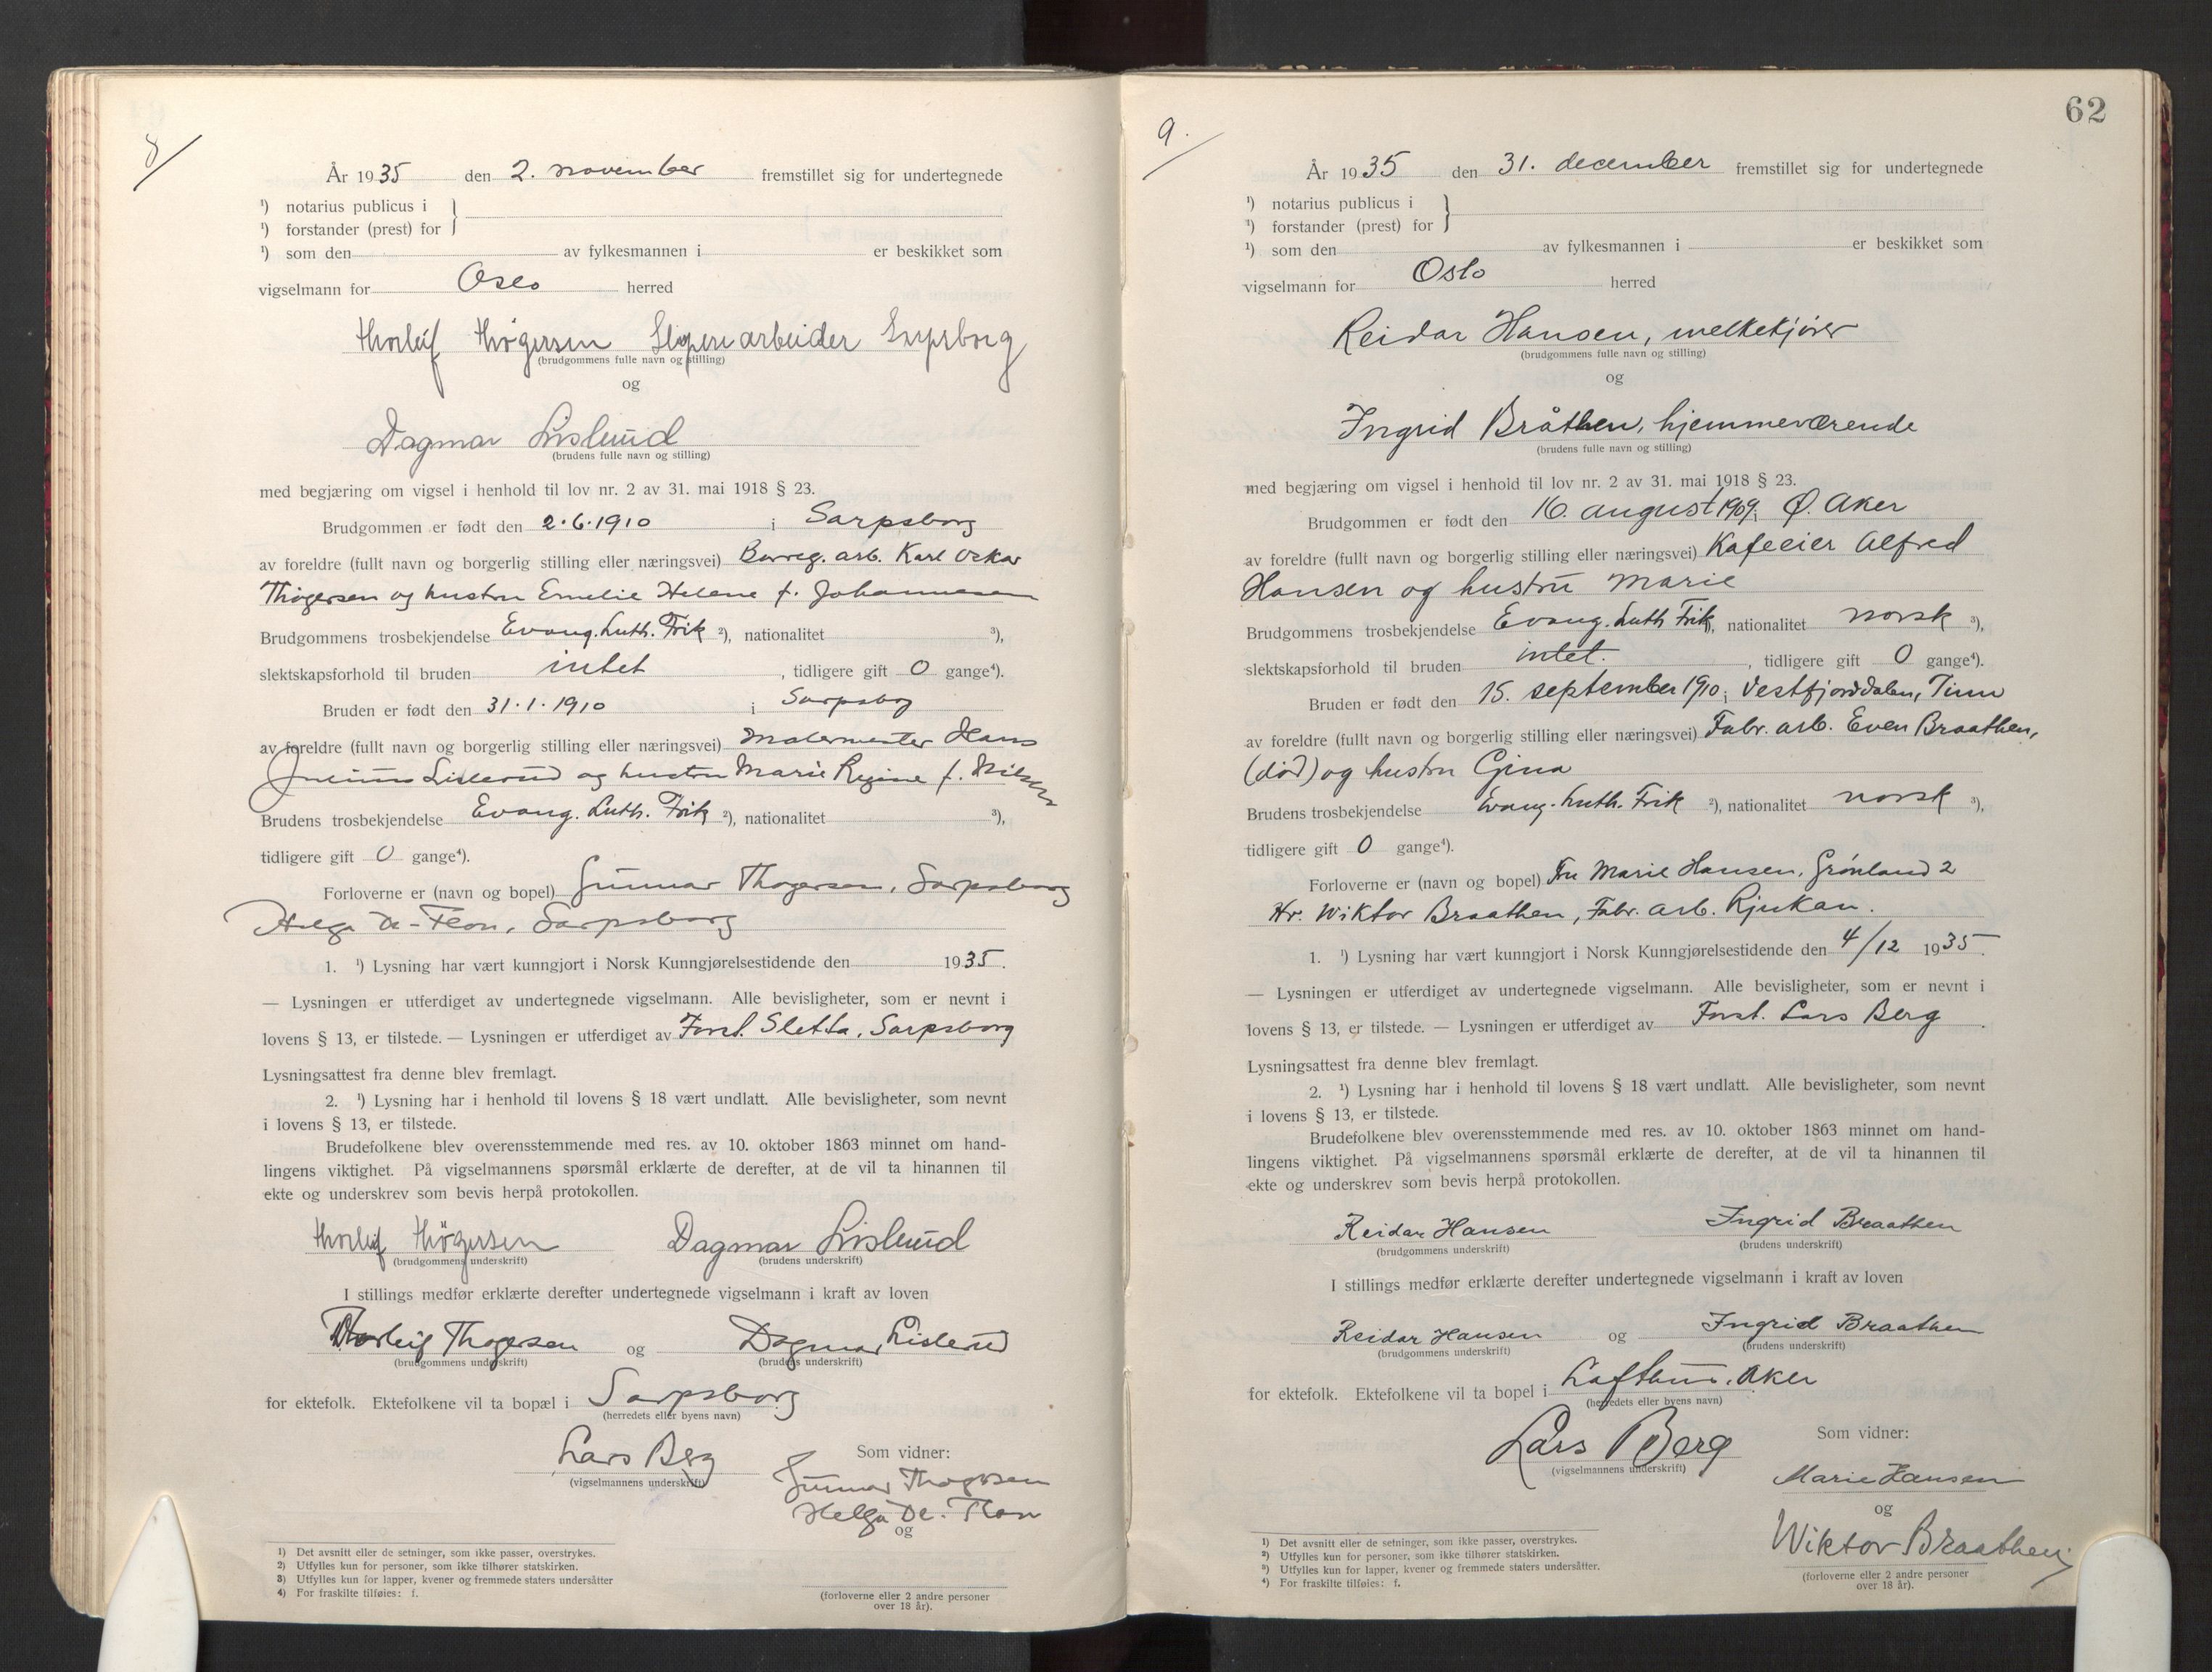 8/
År 1935 den 2. november fremstillet sig for undertegnede
¹) notarius publicus i
¹) forstander (prest) for
¹) som den av fylkesmannen i er beskikket som
vigselmann for Oslo herred
Thorleif Thögersen arbeider Sarpsborg
(brudgommens fulle navn og stilling)
og
Dagmar Lislerud
(brudens fulle navn og stilling)
med begjæring om vigsel i henhold til lov nr. 2 av 31. mai 1918 § 23.
Brudgommen er født den 2.6.1910 i Sarpsborg
av foreldre (fullt navn og borgerlig stilling eller næringsvei) Borreg. arb. Karl Oskar
Thøgersen og hustru Emelie Helene f. Johannesen
Brudgommens trosbekjendelse Evang. Luth. Frik ²), nationalitet ³),
slektskapsforhold til bruden intet, tidligere gift 0 gange⁴).
Bruden er født den 31.1.1910 i Sarpsborg
av foreldre (fullt navn og borgerlig stilling eller næringsvei) Malermester Hans
Julius Lislerud og hustru Marie Regine f. Nilsen
Brudens trosbekjendelse Evang. Luth. Frik ²), nationalitet ³),
tidligere gift 0 gange⁴).
Forloverne er (navn og bopel) Gunnar Thøgersen, Sarpsborg
Helga De-Flon, Sarpsborg
1. ¹) Lysning har vært kunngjort i Norsk Kunngjørelsestidende den 1935.
— Lysningen er utferdiget av undertegnede vigselmann. Alle bevisligheter, som er nevnt i
lovens § 13, er tilstede. — Lysningen er utferdiget av Forst. Sletta, Sarpsborg
Lysningsattest fra denne blev fremlagt.
2. ¹) Lysning har i henhold til lovens § 18 vært undlatt. Alle bevisligheter, som nevnt
i lovens § 13, er tilstede.
Brudefolkene blev overensstemmende med res. av 10. oktober 1863 minnet om hand-
lingens viktighet. På vigselmannens spørsmål erklærte de derefter, at de vil ta hinannen til
ekte og underskrev som bevis herpå protokollen.
Thorleif Thögersen Dagmar Lislerud
(brudgommens underskrift) (brudens underskrift)
I stillings medfør erklærte derefter undertegnede vigselmann i kraft av loven
Thorleif Thøgersen og Dagmar Lislerud
(brudgommens underskrift) (brudens underskrift)
for ektefolk. Ektefolkene vil ta bopæl i Sarpsborg
(herredets eller byens navn)
Lars Berg
(vigselmannens underskrift)
Som vidner:
Gunnar Thøgersen
Helga De-Flon
og
(forloverne eller 2 andre personer
over 18 år).
1) Det avsnitt eller de setninger, som ikke passer, overstrykes.
2) Utfylles kun for personer, som ikke tilhører statskirken.
3) Utfylles kun for lapper, kvener og fremmede staters undersåtter
4) For fraskilte tilføies: f.
62
9.
År 1935 den 31. december fremstillet sig for undertegnede
¹) notarius publicus i
¹) forstander (prest) for
¹) som den av fylkesmannen i er beskikket som
vigselmann for Oslo herred
Reidar Hansen, melkekjører
(brudgommens fulle navn og stilling)
og
Ingrid Bråthen, hjemmeværende
(brudens fulle navn og stilling)
med begjæring om vigsel i henhold til lov nr. 2 av 31. mai 1918 § 23.
Brudgommen er født den 16. august 1909 i Ø. Aker
av foreldre (fullt navn og borgerlig stilling eller næringsvei) Kafeeier Alfred
Hansen og hustru Marie
Brudgommens trosbekjendelse Evang. Luth Frik ²), nationalitet norsk ³),
slektskapsforhold til bruden intet., tidligere gift 0 gange⁴).
Bruden er født den 15. september 1910 i Vestfjorddalen, Tinn
av foreldre (fullt navn og borgerlig stilling eller næringsvei) Fabr. arb. Even Braathen,
(død) og hustru Gina
Brudens trosbekjendelse Evang. Luth. Frik ²), nationalitet norsk ³),
tidligere gift 0 gange⁴).
Forloverne er (navn og bopel) Fru Marie Hansen, Grønland 2
Hr. Wiktor Braathen, Fabr. arb. Rjukan.
1. ¹) Lysning har vært kunngjort i Norsk Kunngjørelsestidende den 4/12 1935.
— Lysningen er utferdiget av undertegnede vigselmann. Alle bevisligheter, som er nevnt i
lovens § 13, er tilstede. — Lysningen er utferdiget av Forst. Lars Berg.
Lysningsattest fra denne blev fremlagt.
2. ¹) Lysning har i henhold til lovens § 18 vært undlatt. Alle bevisligheter, som nevnt
i lovens § 13, er tilstede.
Brudefolkene blev overensstemmende med res. av 10. oktober 1863 minnet om hand-
lingens viktighet. På vigselmannens spørsmål erklærte de derefter, at de vil ta hinannen til
ekte og underskrev som bevis herpå protokollen.
Reidar Hansen Ingrid Braathen
(brudgommens underskrift) (brudens underskrift)
I stillings medfør erklærte derefter undertegnede vigselmann i kraft av loven
Reidar Hansen og Ingrid Braathen
(brudgommens underskrift) (brudens underskrift)
for ektefolk. Ektefolkene vil ta bopel i Lofthus, Aker
(herredets eller byens navn)
Lars Berg
(vigselmannens underskrift)
Som vidner:
Marie Hansen
og
Wiktor Braathen
(forloverne eller 2 andre personer
over 18 år).
1) Det avsnitt eller de setninger, som ikke passer, overstrykes.
²) Utfylles kun for personer, som ikke tilhører statskirken.
³) Utfylles kun for lapper, kvener og fremmede staters undersåtter.
⁴) For fraskilte tilføies: f.